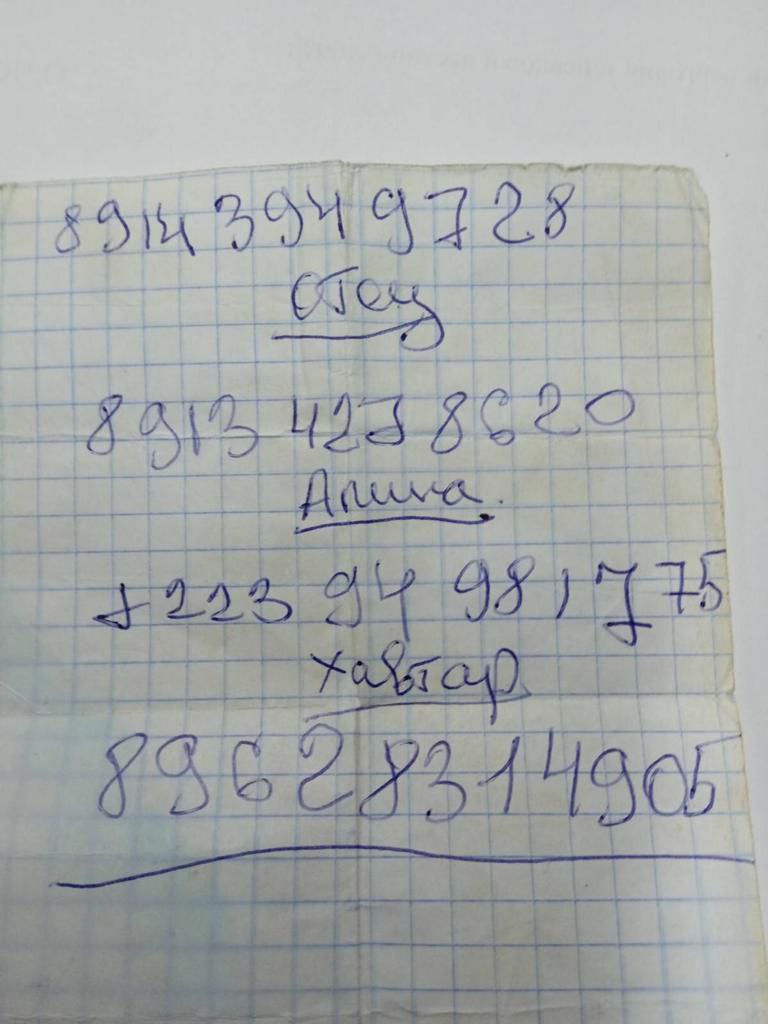 8914 394 9728
Отец
8913 427 8620
Алина.
+223 94 981775
Хавтар
89628314905